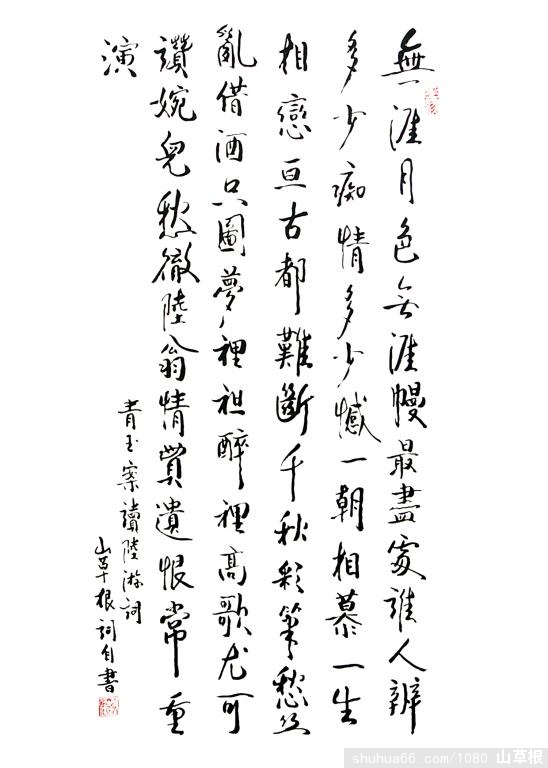 無涯月色无涯幔最盡處誰人辨
多少痴情多少憾一朝相慕一生
相戀亘古都難斷千秋彩筆愁絲
亂借酒只圖夢裡袒醉裡高歌尤可
讚婉兒愁徹陸翁情貫遺恨常重
演
青玉案讀陸游詞
山草根詞自書
shuhua66.com/1080 山草根